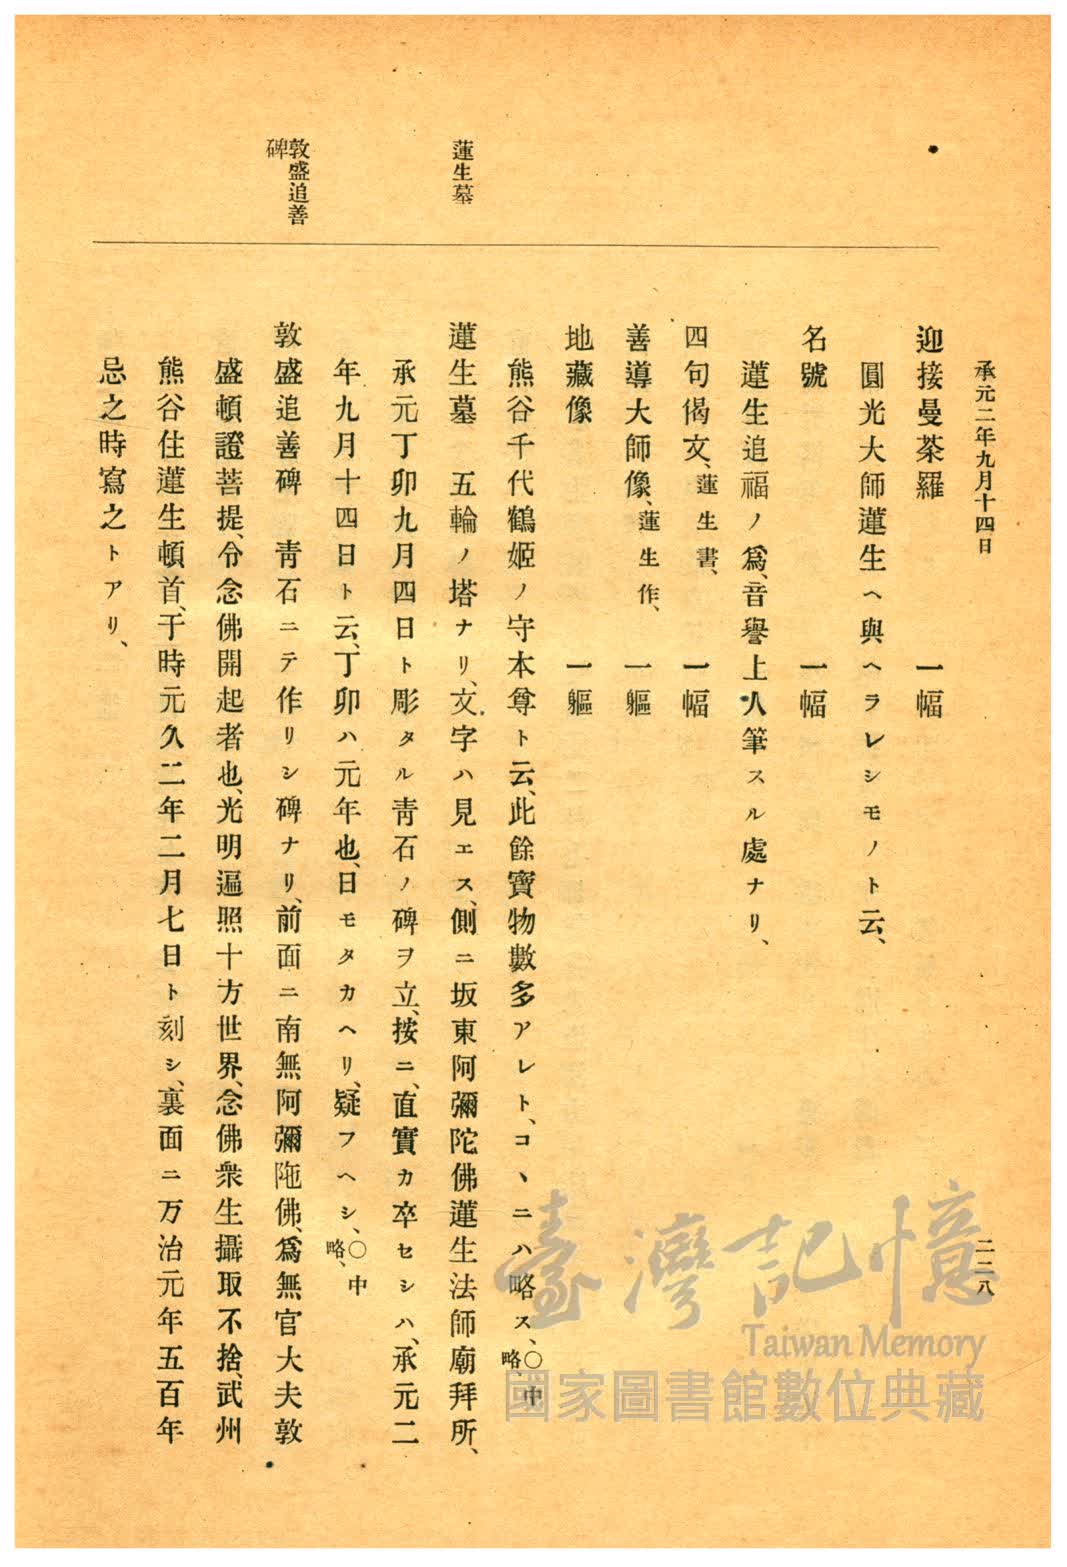 承元二年九月十四日
二二八
迎接曼荼羅 一幅
圓光大師蓮生ヘ與ヘラレシモノト云、
名號 一幅
蓮生追福ノ爲、音譽上人筆スル處ナリ、
四句偈文、蓮生書、 一幅
善導大師像、蓮生作、 一軀
地藏像 一軀
熊谷千代鶴姬ノ守本尊ト云、此餘寶物數多アレト、コヽニハ略ス、〇中略、
蓮生墓
蓮生墓 五輪ノ塔ナリ、文字ハ見エス、側ニ坂東阿彌陀佛蓮生法師廟拜所、
承元丁卯九月四日ト彫タル靑石ノ碑ヲ立、按ニ、直實カ卒セシハ、承元二
年九月十四日ト云、丁卯ハ元年也、日モタカヘリ、疑フヘシ、〇中略、
敦盛追善碑
敦盛追善碑 靑石ニテ作リシ碑ナリ、前面ニ南無阿彌陁佛、爲無官大夫敦
盛頓證菩提、令念佛開起者也、光明遍照十方世界、念佛衆生攝取不捨、武州
熊谷住蓮生頓首、于時元久二年二月七日ト刻シ、裏面ニ万治元年五百年
忌之時寫之トアリ、
臺灣記憶
Taiwan Memory
國家圖書館數位典藏